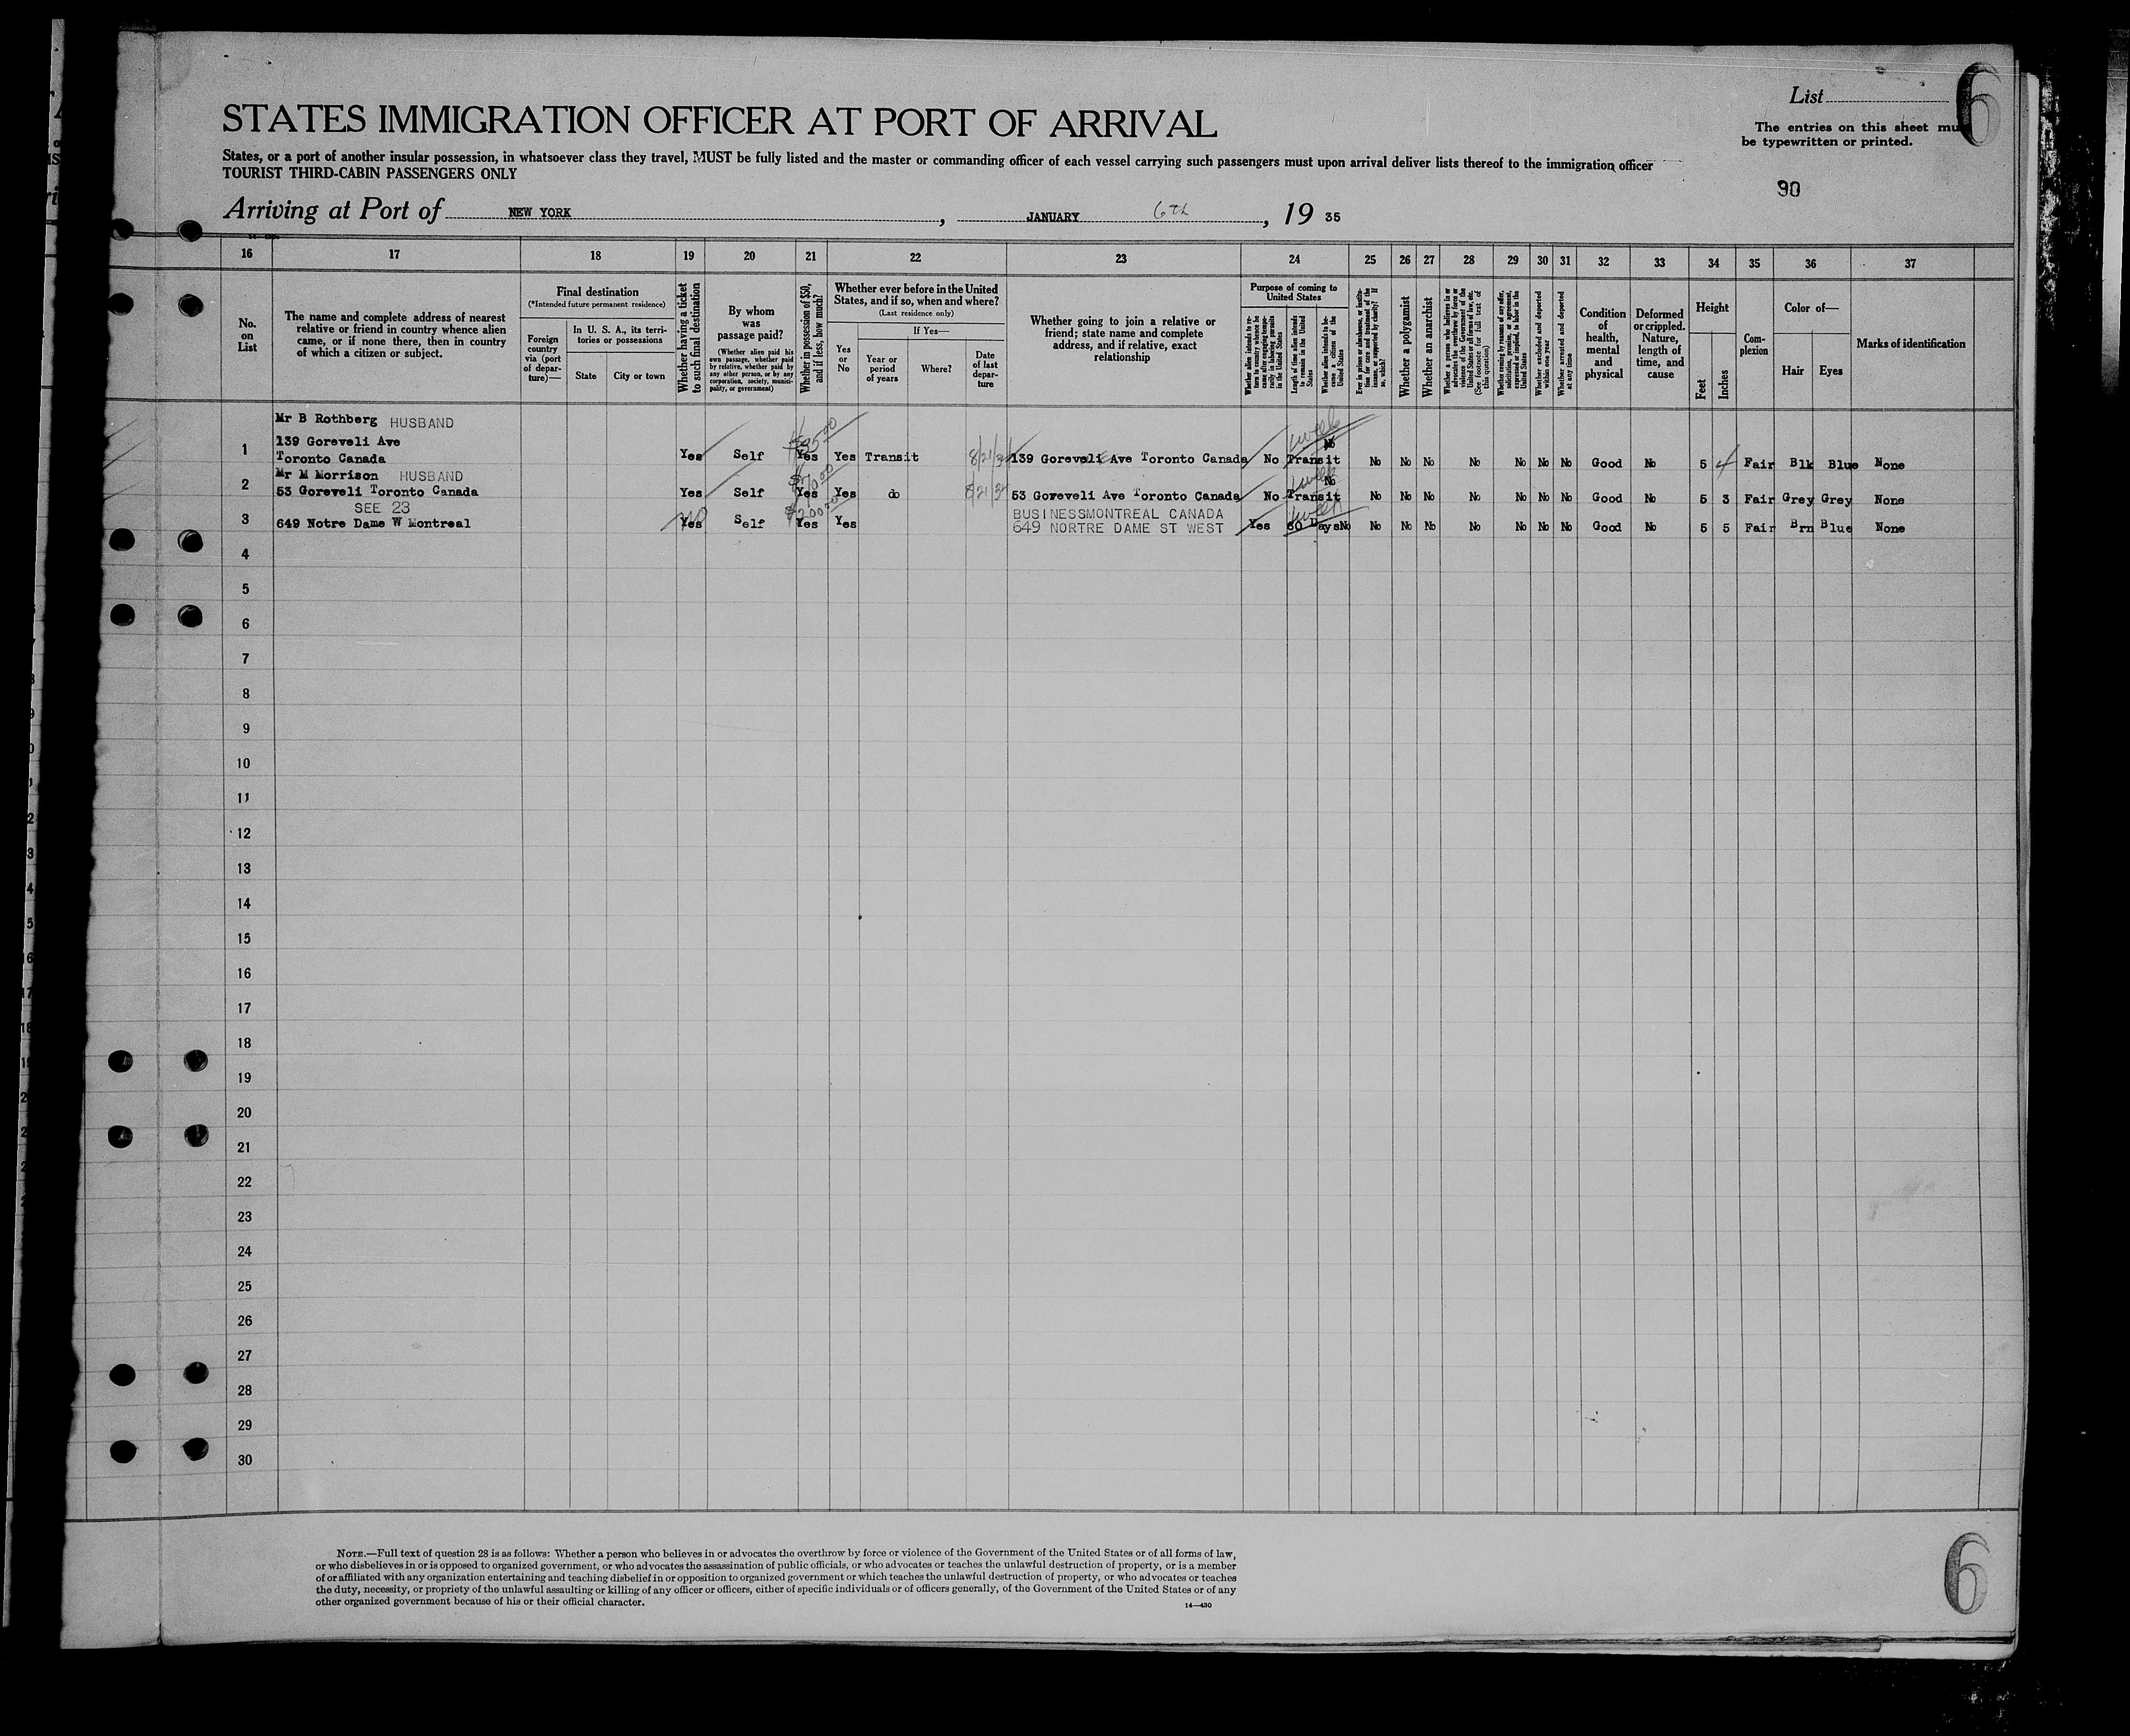 List
6
The entries on this sheet mu
be typewritten or printed.
STATES IMMIGRATION OFFICER AT PORT OF ARRIVAL
States, or a port of another insular possession, in whatsoever class they travel, MUST be fully listed and the master or commanding officer of each vessel carrying such passengers must upon arrival deliver lists thereof to the immigration officer
TOURIST THIRD-CABIN PASSENGERS ONLY
90
Arriving at Port of NEW YORK, JANUARY 6th, 19 35
16 17 18 19 20 21 22 23 24 25 26 27 28 29 30 31 32 33 34 35 36 37
No. on List
The name and complete address of nearest
relative or friend in country whence alien
came, or if none there, then in country
of which a citizen or subject.
Final destination
(*Intended future permanent residence)
Foreign country via (port of departure)—
In U. S. A., its territories or possessions
State
City or town
Whether having a ticket to such final destination
By whom was passage paid?
(Whether alien paid his own passage, whether paid by relative, whether paid by any other person, or by any corporation, society, municipality, or government)
Whether in possession of $50, and if less, how much?
Whether ever before in the United
States, and if so, when and where?
(Last residence only)
Yes or No
If Yes—
Year or period of years
Where?
Date of last departure
Whether going to join a relative or
friend; state name and complete
address, and if relative, exact
relationship
Purpose of coming to United States
Whether alien intends to return to country whence he came after engaging temporarily in laboring pursuits in the United States
Length of time alien intends to remain in the United States
Whether alien intends to become a citizen of the United States
Ever in prison or almshouse, or institution for care and treatment of the insane, or supported by charity? If so, which?
Whether a polygamist
Whether an anarchist
Whether a person who believes in or advocates the overthrow by force or violence of the Government of the United States or all forms of law, etc. (See footnote for full text of this question)
Whether coming by reason of any offer, solicitation, promise, or agreement, expressed or implied, to labor in the United States
Whether excluded and deported within one year
Whether arrested and deported at any time
Condition of health, mental and physical
Deformed or crippled. Nature, length of time, and cause
Height
Feet
Inches
Complexion
Color of—
Hair
Eyes
Marks of identification
Mr B Rothberg HUSBAND
139 Goreveli Ave
1 Toronto Canada Yes Self $35.00 Yes Yes Transit 8/21/34 139 Goreveli Ave Toronto Canada No Transit week No No No No No No No No Good No 5 4 Fair Blk Blue None
Mr M Morrison HUSBAND
2 53 Goreveli Toronto Canada Yes Self Yes Yes do 8/21/34 53 Goveveli Ave Toronto Canada No Transit week No No No No No No No No Good No 5 3 Fair Grey Grey None
SEE 23 BUSINESSMONTREAL CANADA
3 649 Notre Dame W Montreal no Yes Self $200.00 Yes Yes 649 NORTRE DAME ST WEST Yes 60 Days No No No No No No No No Good No 5 5 Fair Brn Blue None
4
5
6
7
8
9
10
11
12
13
14
15
16
17
18
19
20
21
22
23
24
25
26
27
28
29
30
NOTE.—Full text of question 28 is as follows: Whether a person who believes in or advocates the overthrow by force or violence of the Government of the United States or of all forms of law,
or who disbelieves in or is opposed to organized government, or who advocates the assassination of public officials, or who advocates or teaches the unlawful destruction of property, or is a member
of or affiliated with any organization entertaining and teaching disbelief in or opposition to organized government or which teaches the unlawful destruction of property, or who advocates or teaches
the duty, necessity, or propriety of the unlawful assaulting or killing of any officer or officers, either of specific individuals or of officers generally, of the Government of the United States or of any
other organized government because of his or their official character.
14—430
6